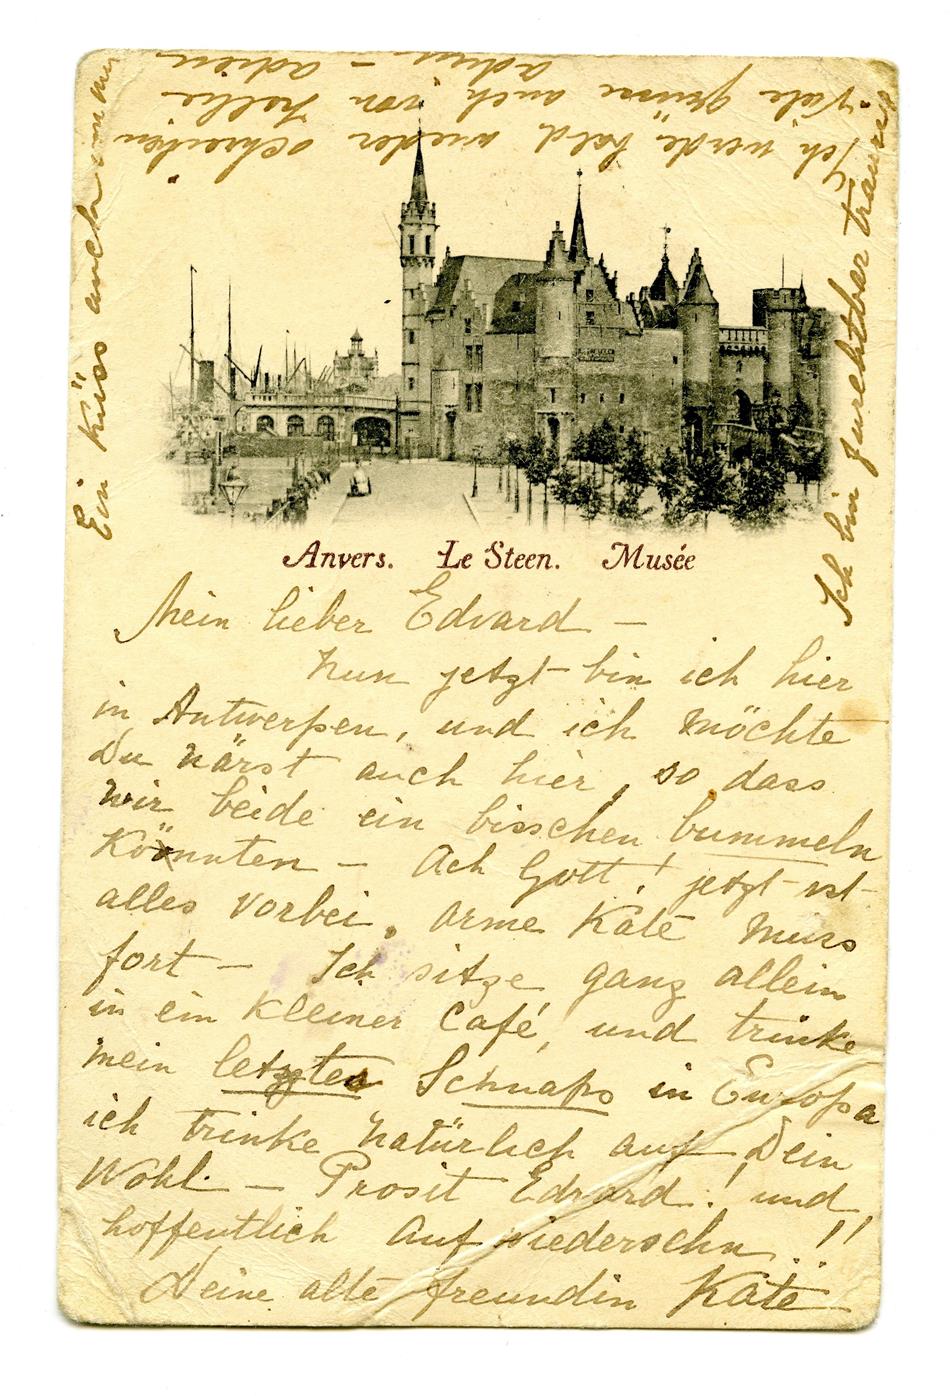 Anvers. Le Steen. Musée
Mein lieber Edvard —
Nun jetzt bin ich hier
in Antwerpen, und ich möchte
Du wärst auch hier, so dass
wir beide ein bisschen bummeln
könnten — Ach Gott! jetzt ist
alles vorbei. Arme Käte muss
fort — Ich sitze ganz allein
in ein kleiner Café, und trinke
mein letzten Schnaps in Europa
ich trinke natürlich auf Dein
Wohl. — Prosit Edvard! und
hoffentlich auf wiedersehn!!
Deine alte freundin Käte
Ich bin furchtbar traurig
Ich werde bald wieder schreiben
Viele grüsse auch von
adieu — adieu
Ein Küss auch von mir